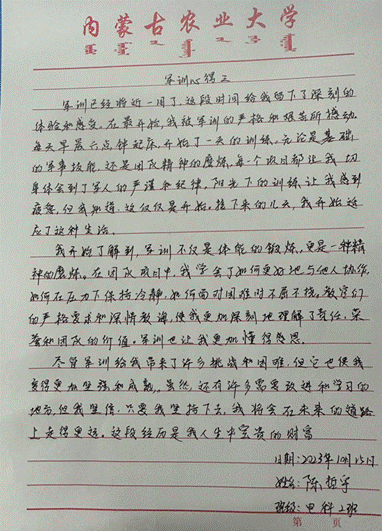 内蒙古农业大学
军训心得三
军训已经将近一周了，这段时间给我留下了深刻的
体验和感受。在最开始，我被军训的严格和艰苦所撼动
每天早晨六点钟起床，开始了一天的训练。无论是基础
的军事技能，还是团队精神的磨炼，每个项目都让我切
身体会到了军人的严谨和纪律。阳光下的训练让我感到
疲惫，但我知道，这仅仅是开始。接下来的几天，我开始适
应了这种生活。
我开始了解到，军训不仅是体能的锻炼，更是一种精
神的磨炼。在团队项目中，我学会了如何更好地与他人协作，
如何在压力下保持冷静，如何面对困难时不屈不挠。教官们
的严格要求和深情教诲，使我更加深刻地理解了责任，荣
誉和团队的价值。军训也让我更加懂得感恩。
尽管军训给我带来了许多挑战和困难，但它也使我
变得更加坚强和成熟。虽然，还有许多需要改进和学习的
地方，但我坚信，只要我坚持下去，我将会在未来的道路
上走得更远。这段经历是我人生中宝贵的财富
日期：2023年10月15日
姓名：陈哲宇
班级：电科2班
第 页